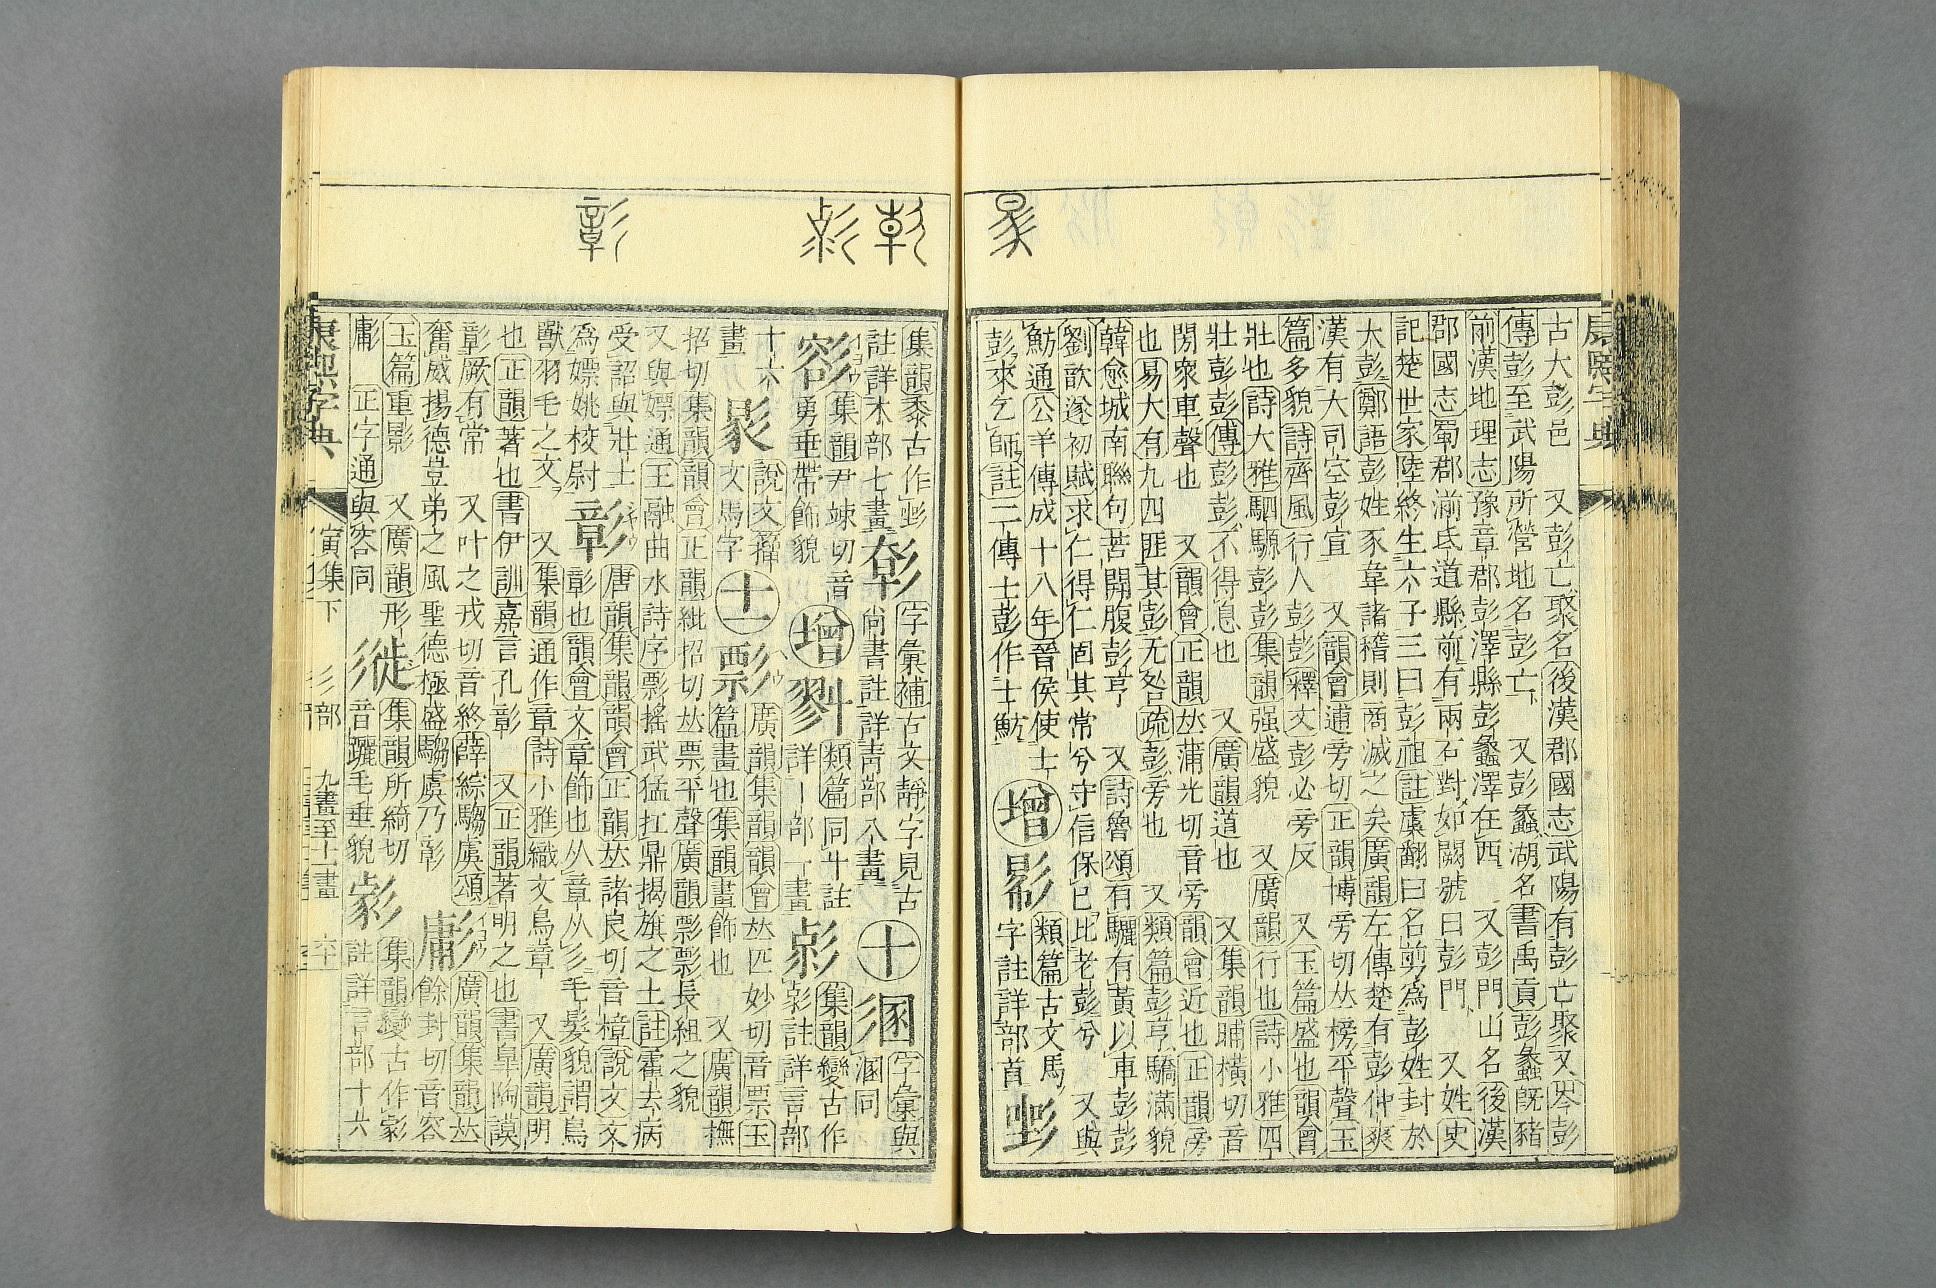 古大彭邑　又彭亡聚名後漢郡國志武陽有彭亡聚又岑彭
傳彭至武陽所營地名彭亡　又彭蠡湖名書禹貢彭蠡旣豬
前漢地理志豫章郡彭澤縣彭蠡澤在西　又彭門山名後漢
郡國志蜀郡湔氐道縣前有兩石對如闕號曰彭門　又姓史
記楚世家陸終生六子三曰彭祖註虞翻曰名剪爲彭姓封於
大彭鄭語彭姓豕韋諸稽則商滅之矣廣韻左傳楚有彭仲爽
漢有大司空彭宣　又韻會逋旁切正韻博旁切𠀤榜平聲玉
篇多貌詩齊風行人彭彭釋文彭必旁反　又玉篇盛也韻會
壯也詩大雅駟騵彭彭集韻强盛貌　又廣韻行也詩小雅四
壯彭彭傳彭彭不得息也　又廣韻道也　又集韻晡橫切音
閍衆車聲也　又韻會正韻𠀤蒲光切音旁韻會近也正韻旁
也易大有九四匪其彭无咎疏彭旁也　又類篇彭亨驕滿貌
韓愈城南聯句苦開腹彭亨　又詩魯頌有驪有黃以車彭彭
劉歆遂初賦求仁得仁固其常兮守信保已比老彭兮　又與
魴通公羊傳成十八年晉侯使士
彭來乞師註二傳士彭作士魴　增
類篇古文馬
字註詳部首
集韻黍古作
註詳木部七畫
字彙補古文靜字見古
尚書註詳靑部八畫　十
字彙與
溷同
集韻尹竦切音
勇垂帶飾貌　增
類篇同斗註
詳｜部｜畫
集韻變古作
註詳言部
十六
畫
說文籀
文馬字　十一　彯
廣韻集韻韻會𠀤匹妙切音票玉
篇畫也集韻畫飾也　又廣韻撫
招切集韻韻會正韻紕招切𠀤票平聲廣韻彯彯長組之貌
又與嫖通王融曲水詩序彯搖武猛扛鼎揭旗之士註霍去病
受詔與壯士
爲嫖姚校尉　彰
唐韻集韻韻會正韻𠀤諸良切音樟說文文
彰也韻會文章飾也从章从彡毛髮貌謂鳥
獸羽毛之文　又集韻通作章詩小雅織文鳥章　又廣韻明
也正韻著也書伊訓嘉言孔彰　又正韻著明之也書臯陶謨
彰厥有常　又叶之戎切音終薛綜騶虞頌
奮威揚德豈弟之風聖德極盛騶虞乃彰
廣韻集韻𠀤
餘封切音容
玉篇重影　又廣韻形
正字通與容同
集韻所綺切
音躧毛垂貌
集韻變古作
註詳言部十六
康熙字典　寅集下　彡部　九畫至十一畫
康熙字典